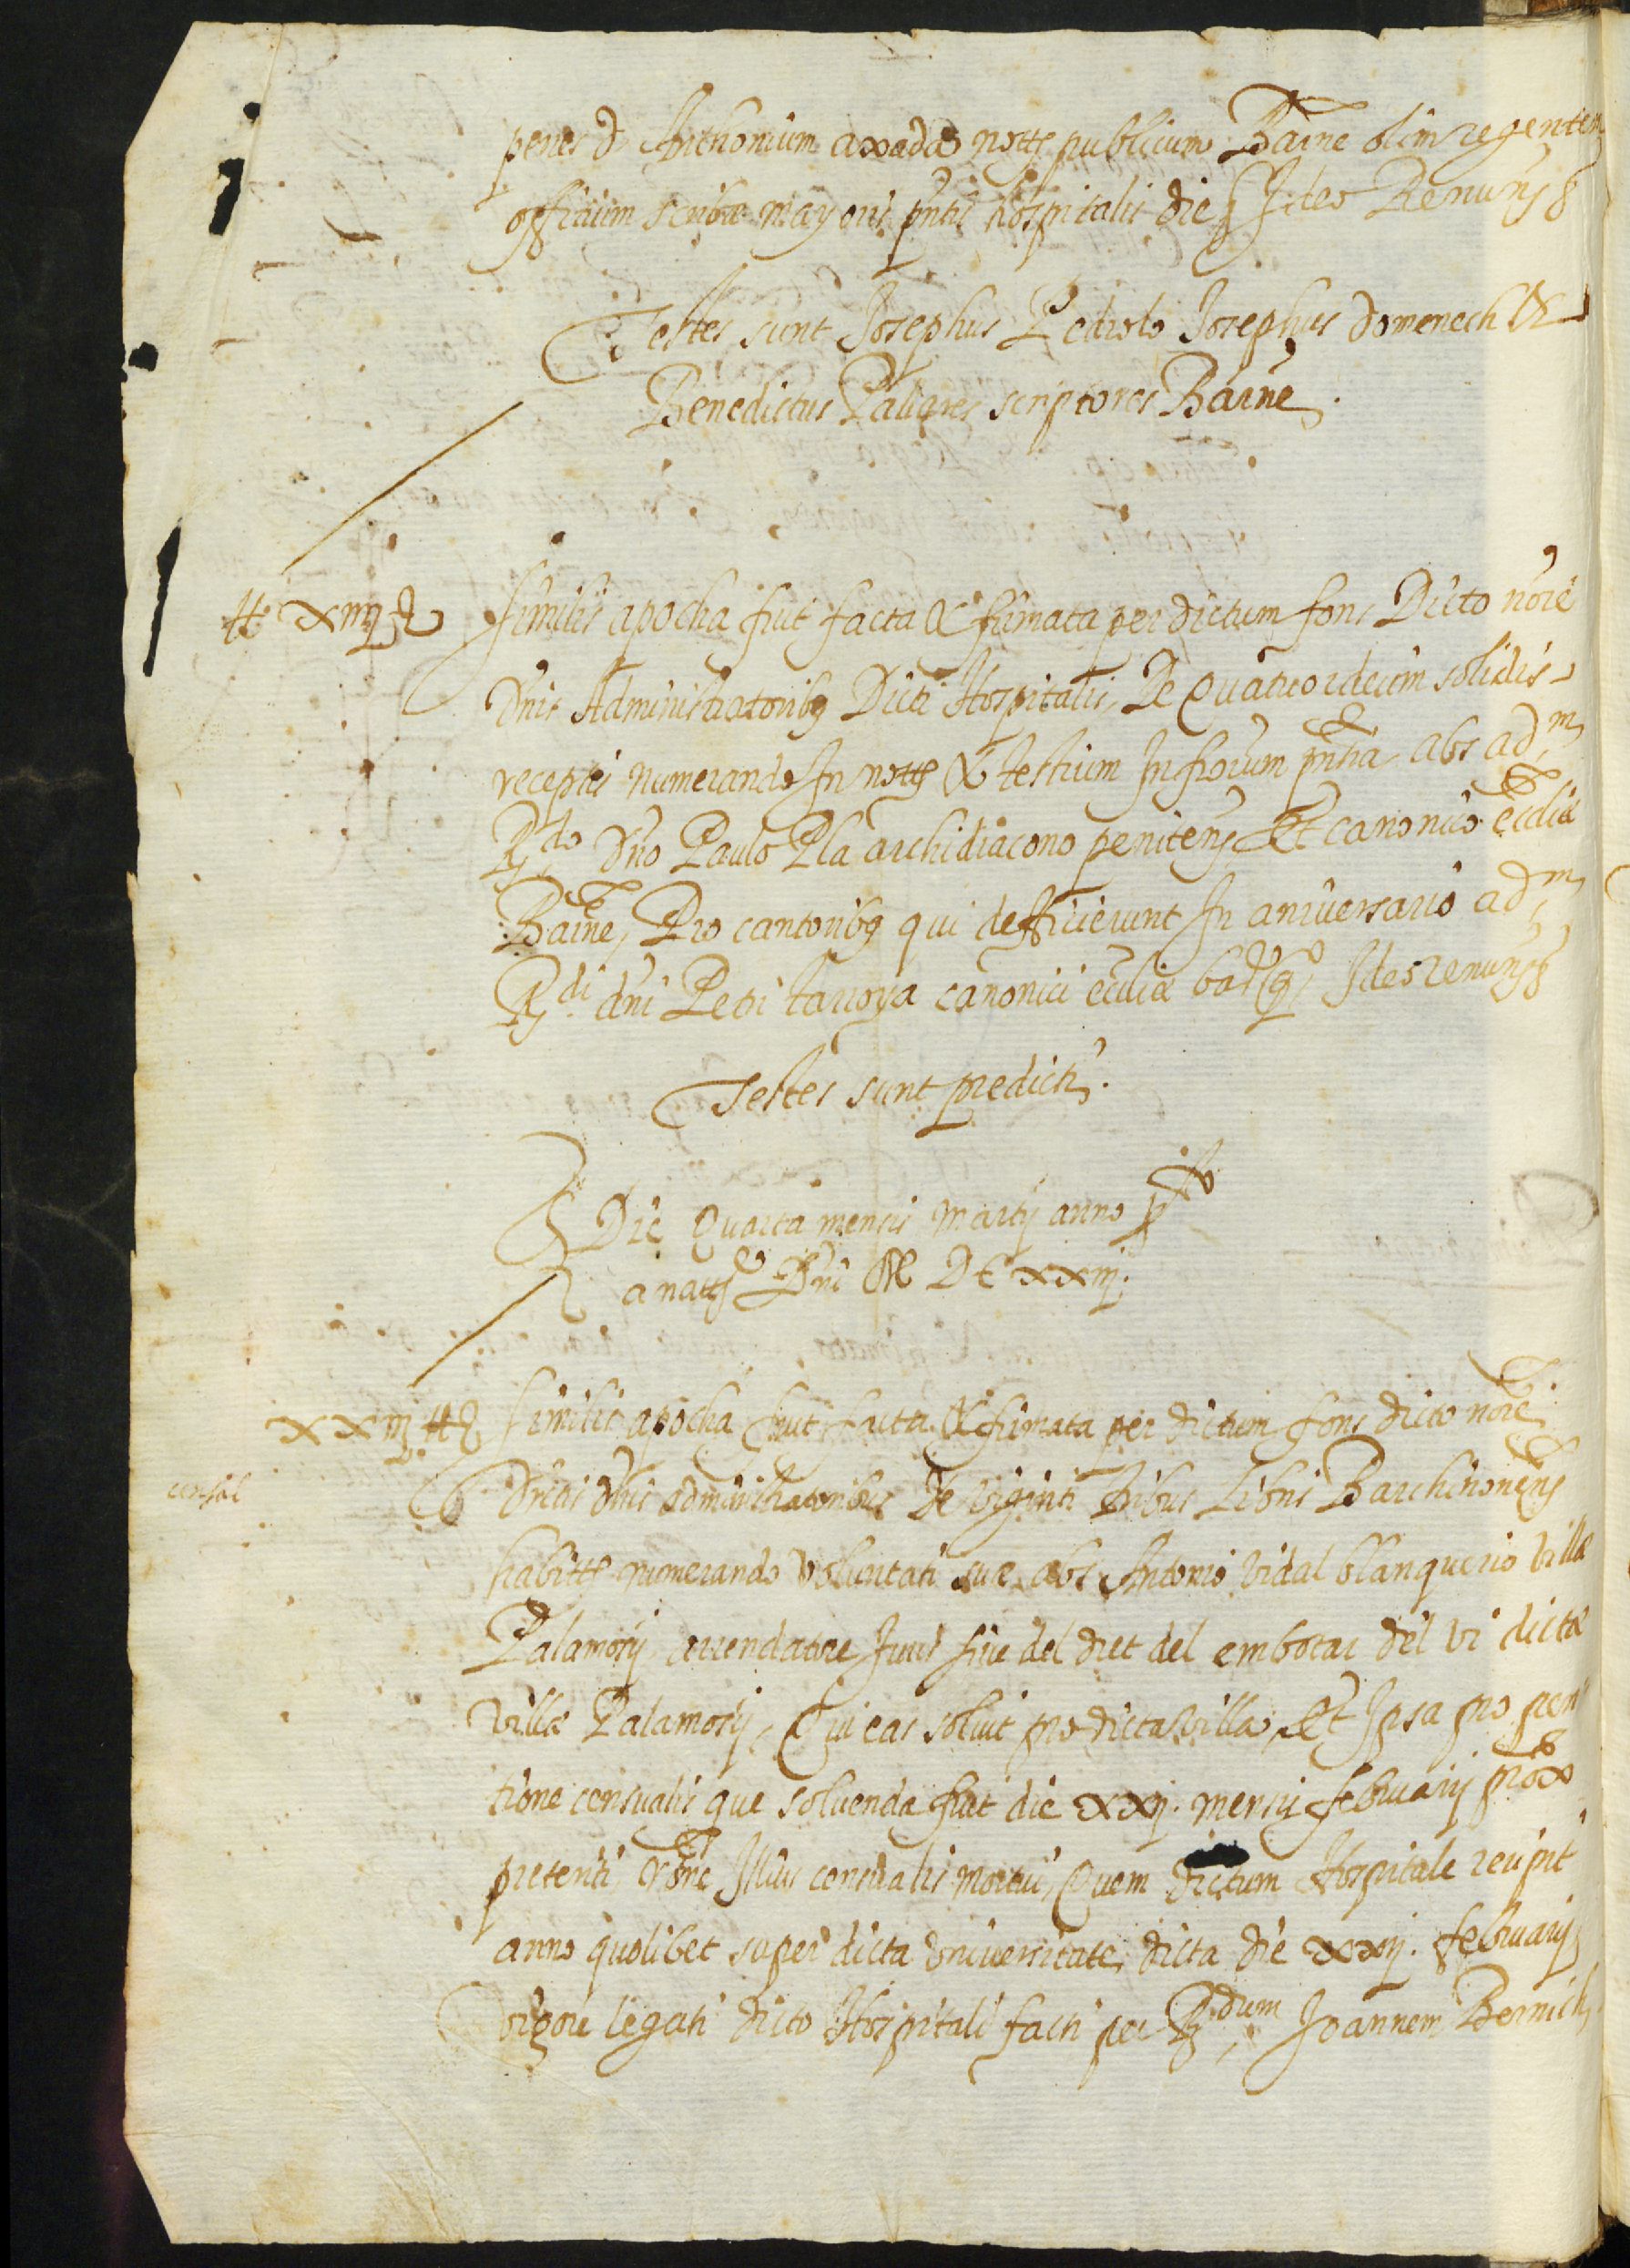 penes d. Anthonium axada nott. publicum Barne. olim regentem
officium scribæ mayoris pntis hospitalis die Ideo Renuns &
Testes sunt Josephus Pedrolo Josephus domenech &
Benedictus Pallares scriptores Barne.
# xiiij s similis apocha fuit facta & firmata per dictum fons Dicto nore
Dnis Administratoribq Dicti Hospitalis, De Quatuordecim solidis
receptis numerando In nott & testium Infrorum pntia abs adm
Rdo dno Paulo Pla archidiacono penitens Et canonico eccliæ
Barne, Pro cantoribq qui deffuerunt In aniversario adm
Rdi. dni Petri tarroya canonici eccliæ Ideo renuns &
Testes sunt predicti.
Die Quarta mensis martij anno pto
a natt Dni M DC xxiij.
xxiij # similis apocha fuit facta & firmata per dictum fons dicto nore
censal Dictis dnis administratoribus De viginti tribus Libris Barchinonens
habitts numerando voluntati suæ abs Antonio vidal blanquerio villæ
Palamosij arrendatore Juris sive del dret del embotar del vi dictæ
villæ Palamosij, Qui eas solvit pro dicta villa, Et Ipsa pro pen
tione censualis que solvenda fuit die xxij. mensis februarij prox
preteriti, rone Illius censualis mortui, Quem dictum Hospitale recipit
anno quolibet super dicta universitate, dicta die xxij. februarij
vigore legati dicto Hospitali facti per Rdum, Joannem Bernich